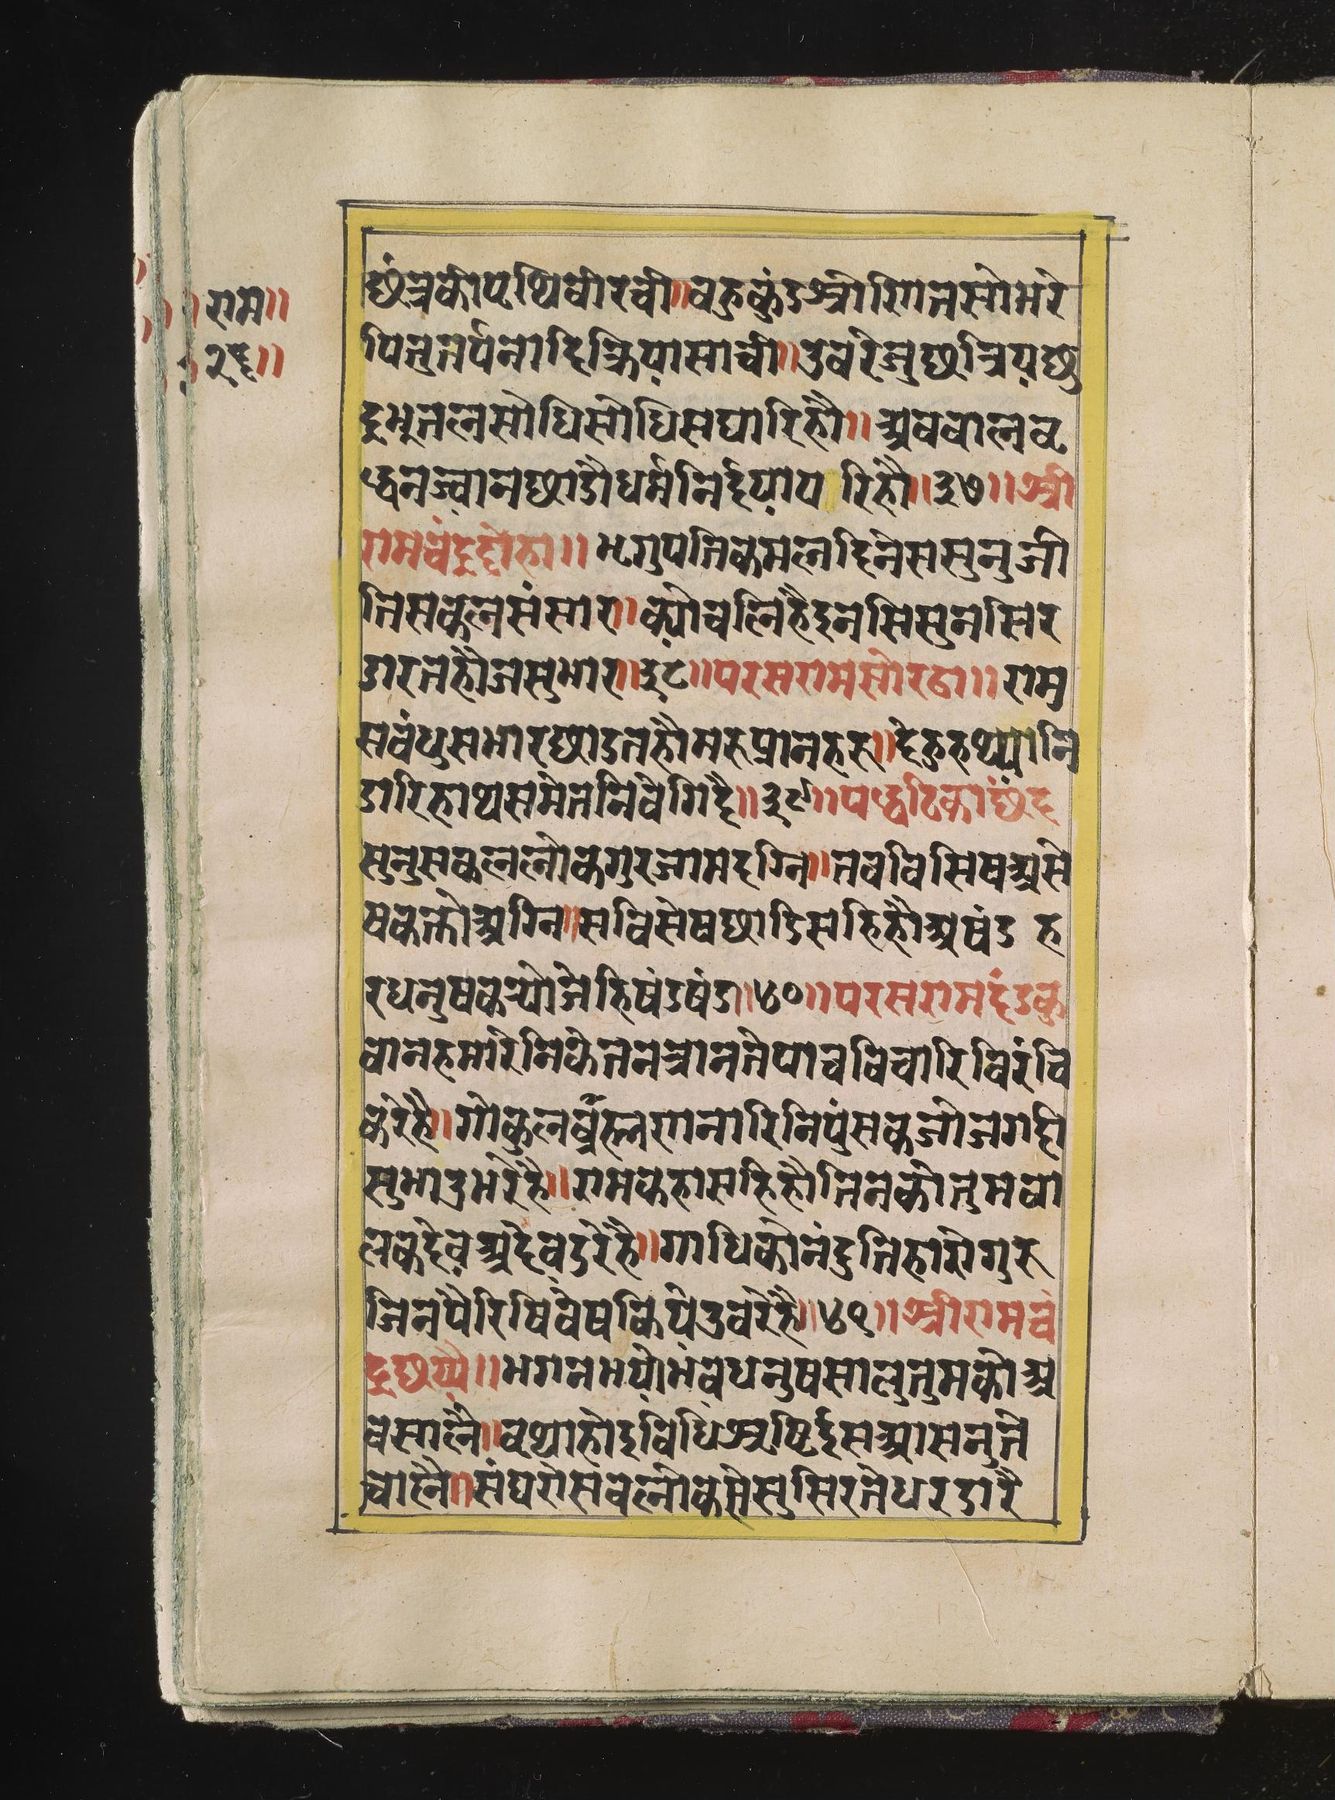 राम॥
२६॥
छंत्रकीपृथिवीरची॥बहुकुंडश्रीरिगनसोभरे
पितुतर्पनादिक्रियासाची॥उबरेजुछत्रियछु
द्रभूतलसोधिसोधिसघारिहौ॥अवबालबृ
द्धनज्वानछाडौधर्मनिर्दयापरिहौ॥३७॥श्री
रामचंद्रदोहा॥भृगुपतिकमलदिनेससुनुजी
तिसकलसंसार॥क्योचलिहैइनसिसुनसिर
डारतहौजसुभार॥३८॥परसरामसोरठा॥राम
सबंधुसभारछाडतहौमरुप्रानहरु॥देहुहथ्यानि
डारिहाथसमेतनिबेगिदै॥३९॥पद्धटिकाछंद
सुनुसकललोकगुरजामदग्नि॥तबबिसिषअसे
षकत्तोअग्नि॥सबिसेषछाडिसहिहौअषंडह
रधनुषकर्‍योजेहिषंडषंड॥४०॥परसरामदंडकु
बानहमारेनिकेतनत्रानतेपाचबिचारिबिरंचि
करेहै॥गोकुलब्रंह्मरानारिनिपुंसकजोजगही
सुभाउभरेहै॥रामकहासहिहौतिनकोतुमबा
लकदेवअदेवडरेहै॥गाधिकोनंदुतिहारोगुरु
जिनपैरिषिबेषकियेउबरेहै॥४१॥श्रीरामचं
द्रछप्पै॥भगनभयोभबधनुषसालुतुमकोअ
बसालै॥बृथाहोइबिधिश्रष्टिईसआसनुते
चालै॥संघरोसबलोकसेसुसिरतेधरडारै